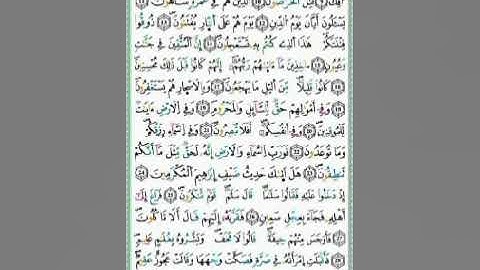 أُفِكَ ۝ قُتِلَ اَ۬لْخَرَّٰصُونَ ۝ اَ۬لذِينَ هُمْ فِے غَمْرَةٖ سَاهُونَ ۝
يَسْـَٔلُونَ أَيَّانَ يَوْمُ اُ۬لدِّينِ ۝ يَوْمَ هُمْ عَلَى اَ۬لنّ۪ارِ يُفْتَنُونَ ۝ ذُوقُواْ
فِتْنَتَكُمْ هَٰذَا اَ۬لذِے كُنتُم بِهِۦ تَسْتَعْجِلُونَ ۝ إِنَّ اَ۬لْمُتَّقِينَ فِے جَنَّٰتٖ
وَعُيُونٍ ۝ ـاخِذِينَ مَآ ءَات۪يٰهُمْ رَبُّهُمُۥٓ إِنَّهُمْ كَانُواْ قَبْلَ ذَٰلِكَ مُحْسِنِينَ ۝
كَانُواْ قَلِيلاٗ مِّنَ اَ۬ليْلِ مَا يَهْجَعُونَ ۝ وَبِالَاسْح۪ارِ هُمْ يَسْتَغْفِرُونَ ۝
وَفِےٓ أَمْوَٰلِهِمْ حَقّٞ لِّلسَّآئِلِ وَالْمَحْرُومِ ۝ وَفِے اِ۬لَارْضِ ءَايَٰتٞ
لِّلْمُوقِنِينَ ۝ وَفِےٓ أَنفُسِكُمُۥٓ أَفَلَا تُبْصِرُونَ ۝ وَفِے اِ۬لسَّمَآءِ رِزْقُكُمْ
وَمَا تُوعَدُونَ ۝ فَوَرَبِّ اِ۬لسَّمَآءِ وَالَارْضِ إِنَّهُۥ لَحَقّٞ مِّثْلَ مَآ أَنَّكُمْ
تَنطِقُونَ ۝ هَلَ اَت۪يٰكَ حَدِيثُ ضَيْفِ إِبْرَٰهِيمَ اَ۬لْمُكْرَمِينَ ۝
إِذْ دَخَلُواْ عَلَيْهِ فَقَالُواْ سَلَٰماٗ قَالَ سَلَٰمٞ قَوْمٞ مُّنكَرُونَ ۝ فَرَاغَ إِلَىٰٓ
أَهْلِهِۦ فَجَآءَ بِعِجْلٖ سَمِينٖ ۝ فَقَرَّبَهُۥٓ إِلَيْهِمْ قَالَ أَلَا تَاكُلُونَ ۝
فَأَوْجَسَ مِنْهُمْ خِيفَةٗ قَالُواْ لَا تَخَفْ وَبَشَّرُوهُ بِغُلَٰمٍ عَلِيمٖ ۝
فَأَقْبَلَتِ اِ۪مْرَأَتُهُۥ فِے صَرَّةٖ فَصَكَّتْ وَجْهَهَا وَقَالَتْ عَجُوزٌ عَقِيمٞ